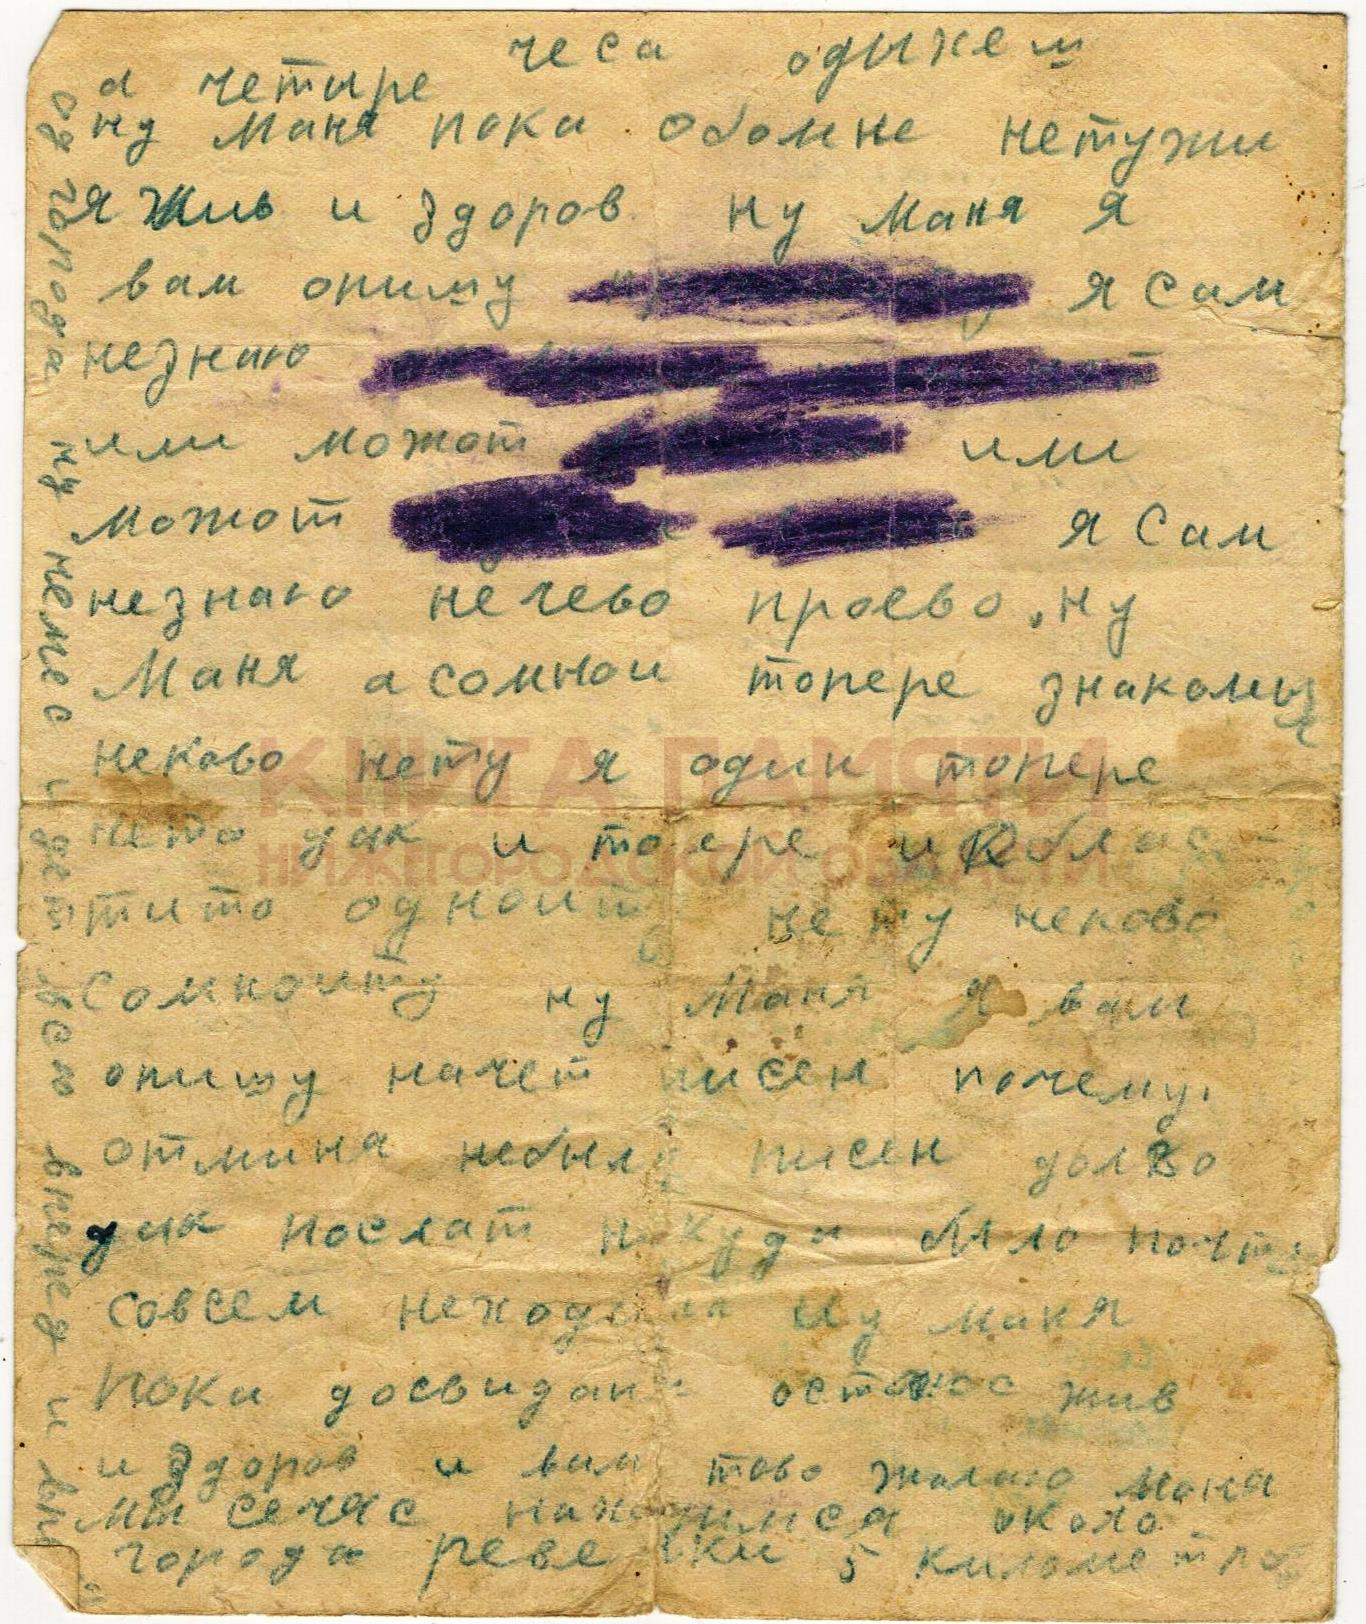 чеса одыхем
а четыре
ну Маня пока обомне нетужи
я жив и здоров ну маня я
вам опишу я сам
незнаю
или можот или
можот я сам
незнаю нечево проево, ну
Маня а сомнои топере знакомых
неково нету я один топере
нето дак и топере и Облас
тито однойт нету неково
сомноиту ну Маня я вам
опишу начет писем почему,
отминя небыло писем долво
дак послат некуда было почта
совсем неходила Ну маня
пока досвидания остаюс жив
и здоров и вам тово жалаю Маня
мы сечас находимся около
города ревеки 5 километров
од города ну немес идет всю вперед и вп
КНИГА ПАМЯТИ
НИЖЕГОРОДСКОЙ ОБЛАСТИ